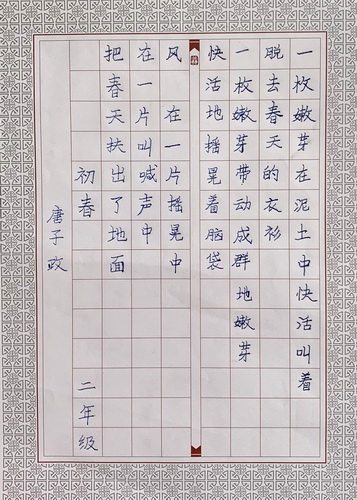 一枚嫩芽在泥土中快活叫着
脱去春天的衣衫
一枚嫩芽带动成群地嫩芽
快活地摇晃着脑袋
风 在一片摇晃中
在一片叫喊声中
把春天扶出了地面
初春 二年级
唐子政